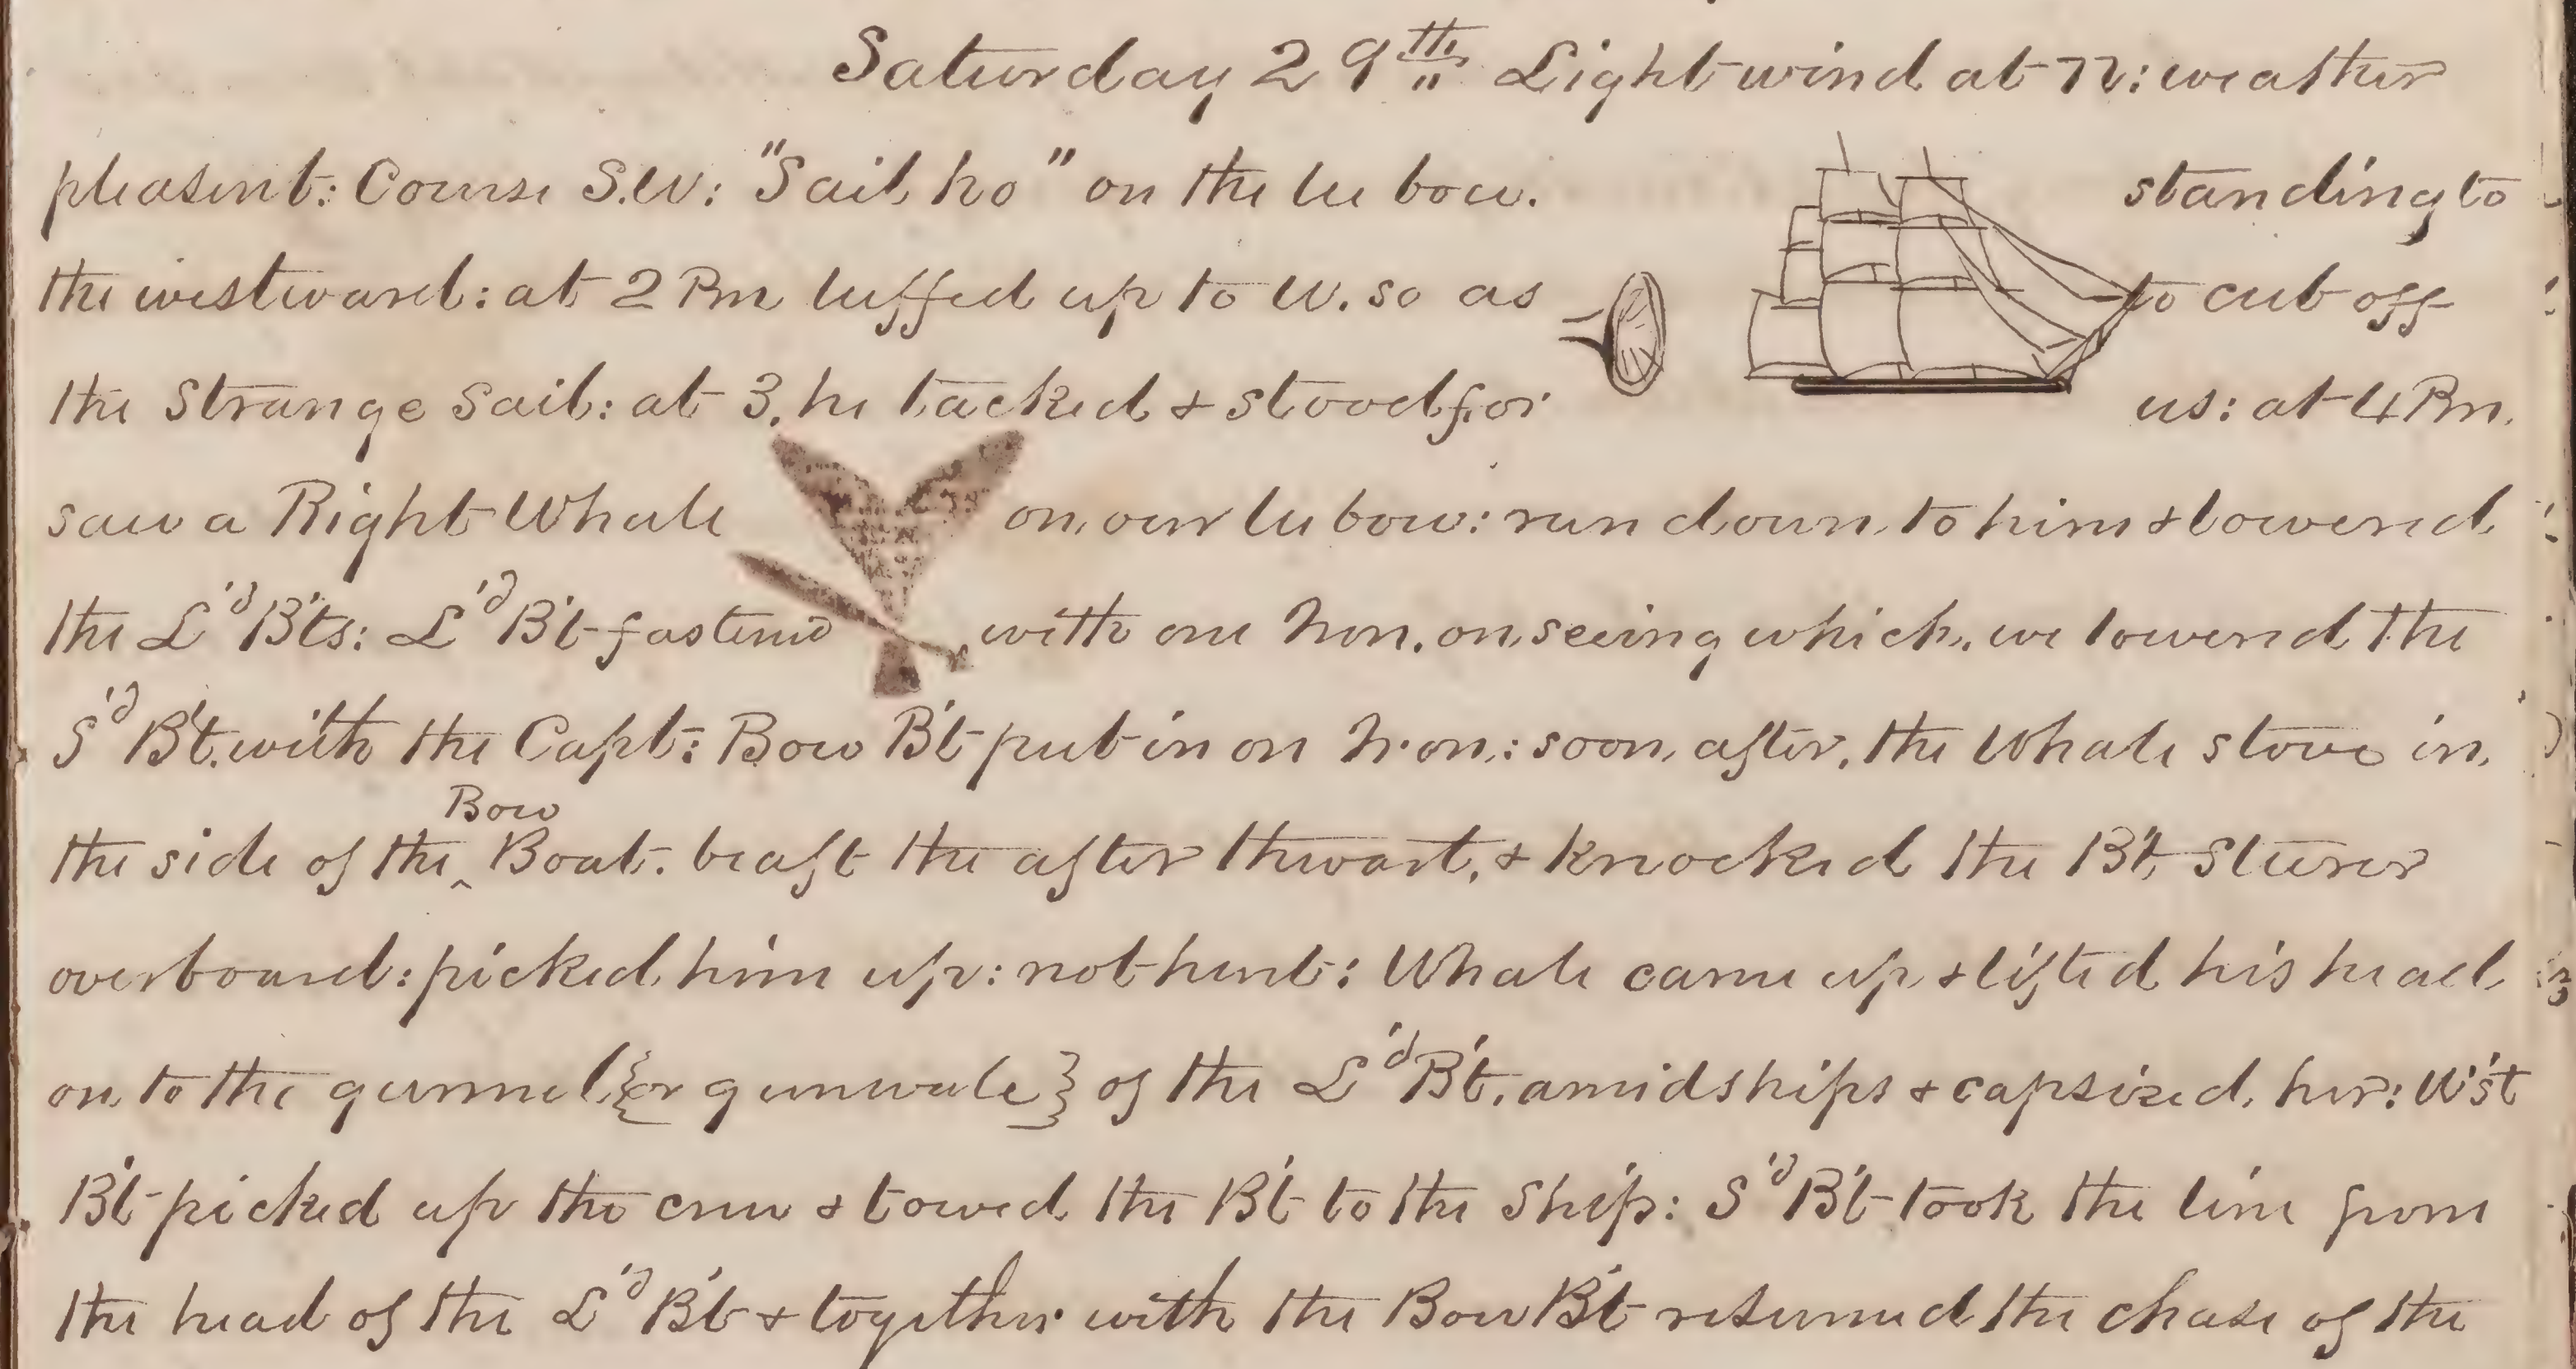 Saturday 29th Light wind at N: weather
pleasent: Course S.W: "Sail ho" on the lee bow. standing to
the westward: at 2 Pm luffed up to W. so as to cut off
the Strange Sail: at 3, he tacked & stood for us: at 4 Pm.
saw a Right Whale on our lee bow: run down to him & lowered
the L'd B'ts: L'd B't fastened with one Iron. on seeing which, we lowered the
S'd B't. with the Capt: Bow B't put in on Iron: soon after, the Whale stove in
the side of the ^ Bow Boat. beaft the after thwart, & knocked the B't Steerer
overboard: picked him up: not hurt: Whale came up & lifted his head
on to the gunnel {or gunwale} of the L'd B't. amidships & capsized her: W'st
B't picked up the crew & towed the B't to the Ship: S'd B't took the line from
the head of the L'd B't & together with the Bow B't resumed the chase of the